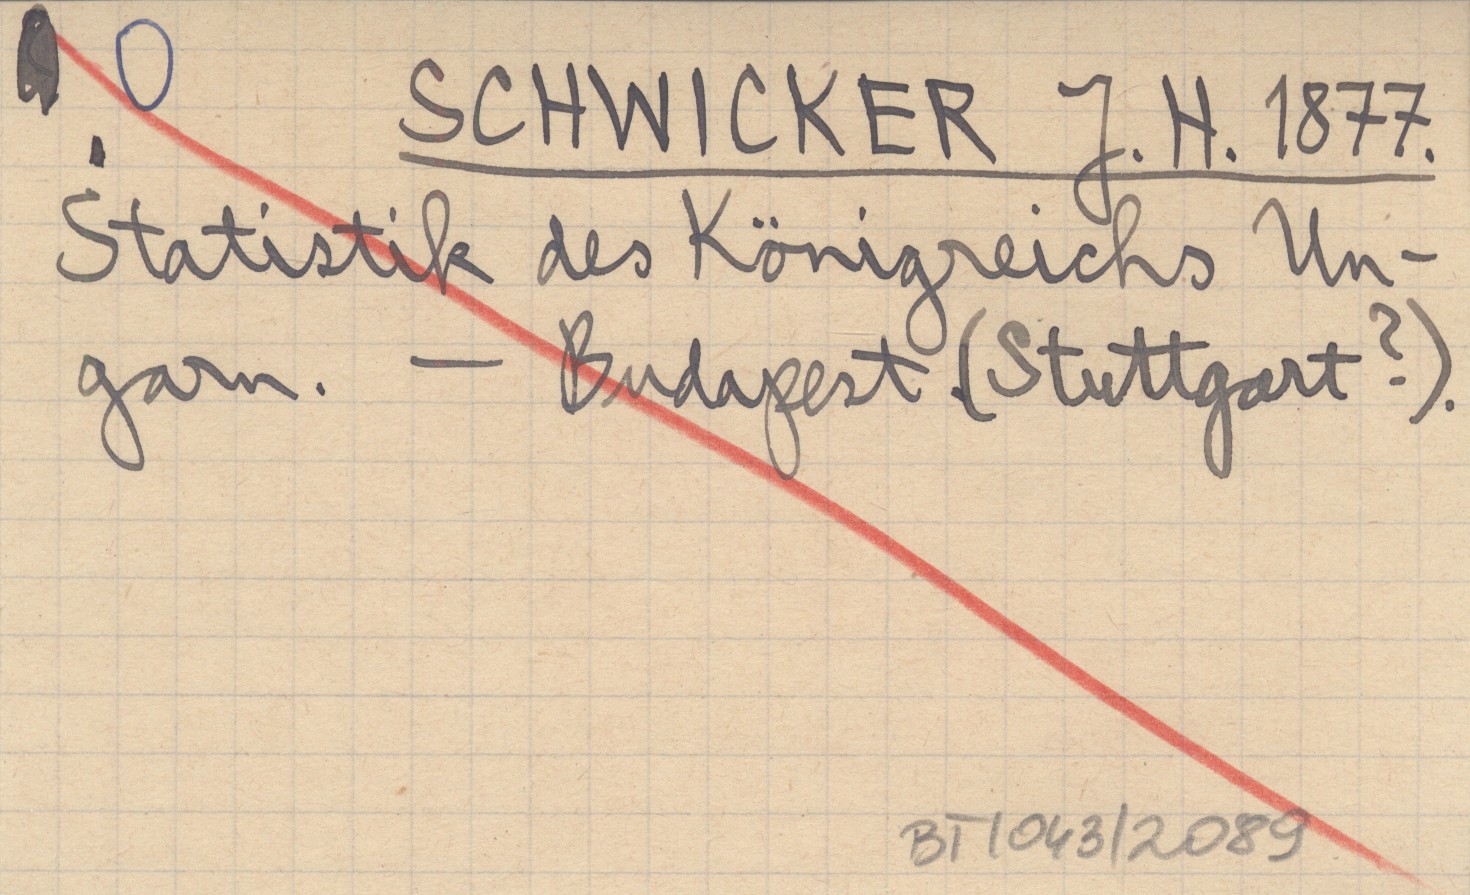 O
SCHWICKER J. H. 1877.
Statistik des Königreichs Un-
garn. — Budapest. (Stuttgart?).
BT/043/2089